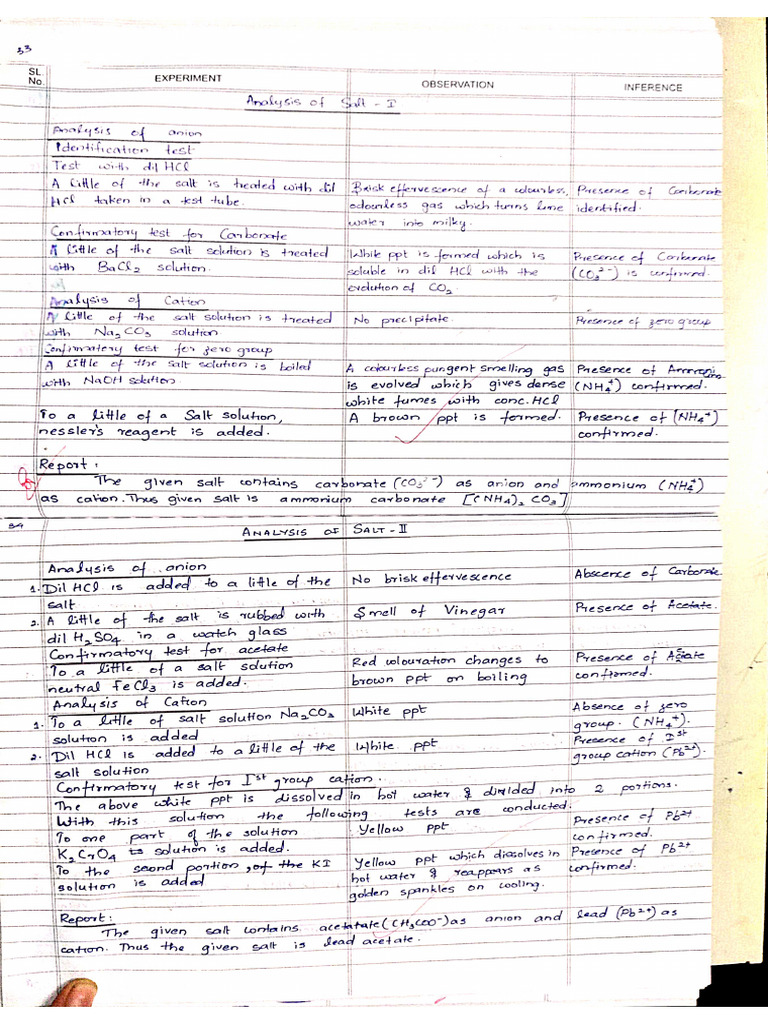 33
SL. No.	EXPERIMENT	OBSERVATION	INFERENCE
Analysis of Salt - I
Analysis of anion
Identification test
Test with dil HCl
A little of the salt is treated with dil	Brisk effervescence of a colourless,	Presence of Carbonate
HCl taken in a test tube.	odourless gas which turns lime	identified.
water into milky.
Confirmatory test for Carbonate
A little of the salt solution is treated	White ppt is formed which is	Presence of Carbonate
with BaCl2 solution.	soluble in dil HCl with the	(CO3²⁻) is confirmed.
evolution of CO2
Analysis of Cation
A little of the salt solution is treated	No precipitate.	Presence of zero group
with Na2CO3 solution
Confirmatory test for zero group
A little of the salt solution is boiled	A colourless pungent smelling gas	Presence of
with NaOH solution.	is evolved which gives dense	(NH4⁺) confirmed.
white fumes with conc. HCl
To a little of a Salt solution,	A brown ppt is formed.	Presence of (NH4⁺)
nessler's reagent is added.	confirmed.
Report:
The given salt contains carbonate (CO3²⁻) as anion and ammonium (NH4⁺)
as cation. Thus given salt is ammonium carbonate [(NH4)2 CO3]
34
ANALYSIS OF SALT - II
Analysis of anion
1. Dil HCl is added to a little of the	No brisk effervescence	Abscence of Carbonate
salt
2. A little of the salt is rubbed with	Smell of Vinegar	Presence of Acetate.
dil H2SO4 in a watch glass
Confirmatory test for acetate
To a little of a salt solution	Red colouration changes to	Presence of Acetate
neutral FeCl3 is added.	brown ppt on boiling	confirmed.
Analysis of Cation
1. To a little of salt solution Na2CO3	White ppt	Absence of zero
solution is added	group. (NH4⁺).
2. Dil HCl is added to a little of the	White ppt	Presence of Ist
salt solution	group cation (Pb²⁺).
Confirmatory test for Ist group cation.
The above white ppt is dissolved in hot water & divided into 2 portions.
With this solution the following tests are conducted.
To one part of the solution	Yellow ppt	Presence of Pb²⁺
K2CrO4 solution is added.	confirmed.
To the second portion, of the KI	Yellow ppt which dissolves in	Presence of Pb²⁺
solution is added	hot water & reappears as	confirmed.
golden spankles on cooling.
Report:
The given salt contains acetatate (CH3COO⁻) as anion and lead (Pb²⁺) as
cation. Thus the given salt is lead acetate.